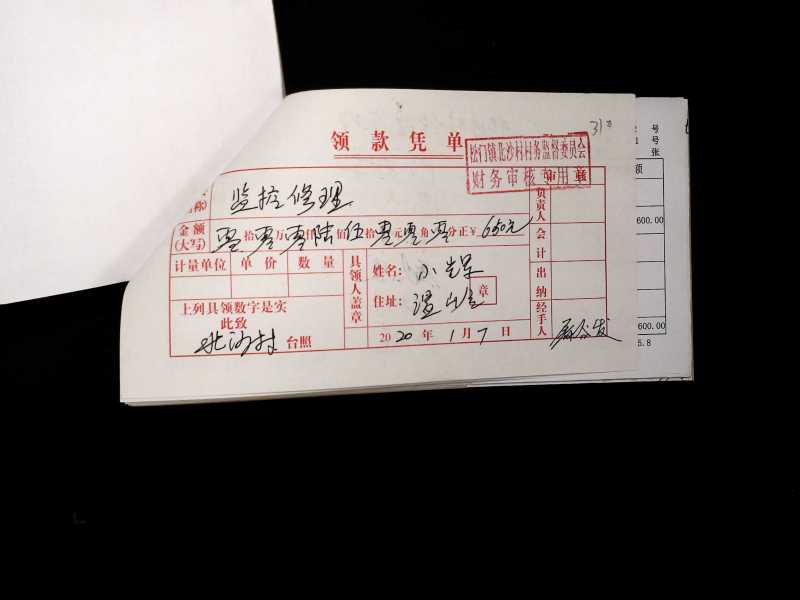 31
号
号
张
领款凭单
松门镇北沙村村务监督委员会
财务审核专用章
名称)
监控修理
金额
(大写)
零拾零万零仟陆佰伍拾零元零角零分正¥650元
计量单位 单价 数量
具领人盖章
姓名:
住址:
章
上列具领数字是实
此致
北沙村 台照
2020年1月7日
负责人
会计
出纳
经手人
额
600.00
600.00
5.8